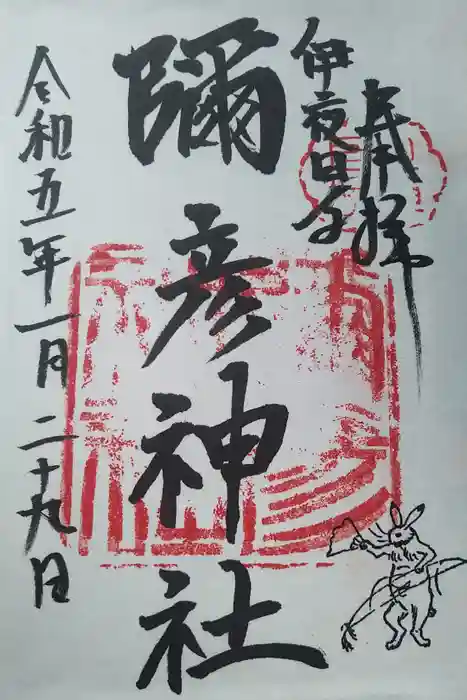 奉拝
伊夜日子
彌彦神社
令和五年一月二十九日